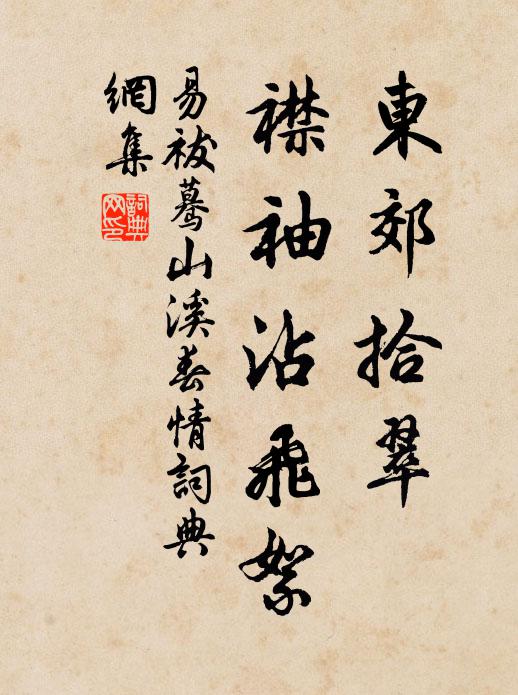 東郊拾翠
襟袖沾飛絮
易祓驀山溪春情詞典
網集
詞典網印